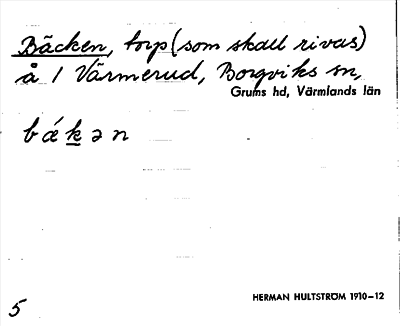 Bäcken, torp (som skall rivas)
å 1 Värmerud, Borgviks sn,
Grums hd, Värmlands län
bǽkən
HERMAN HULTSTRÖM 1910–12
5